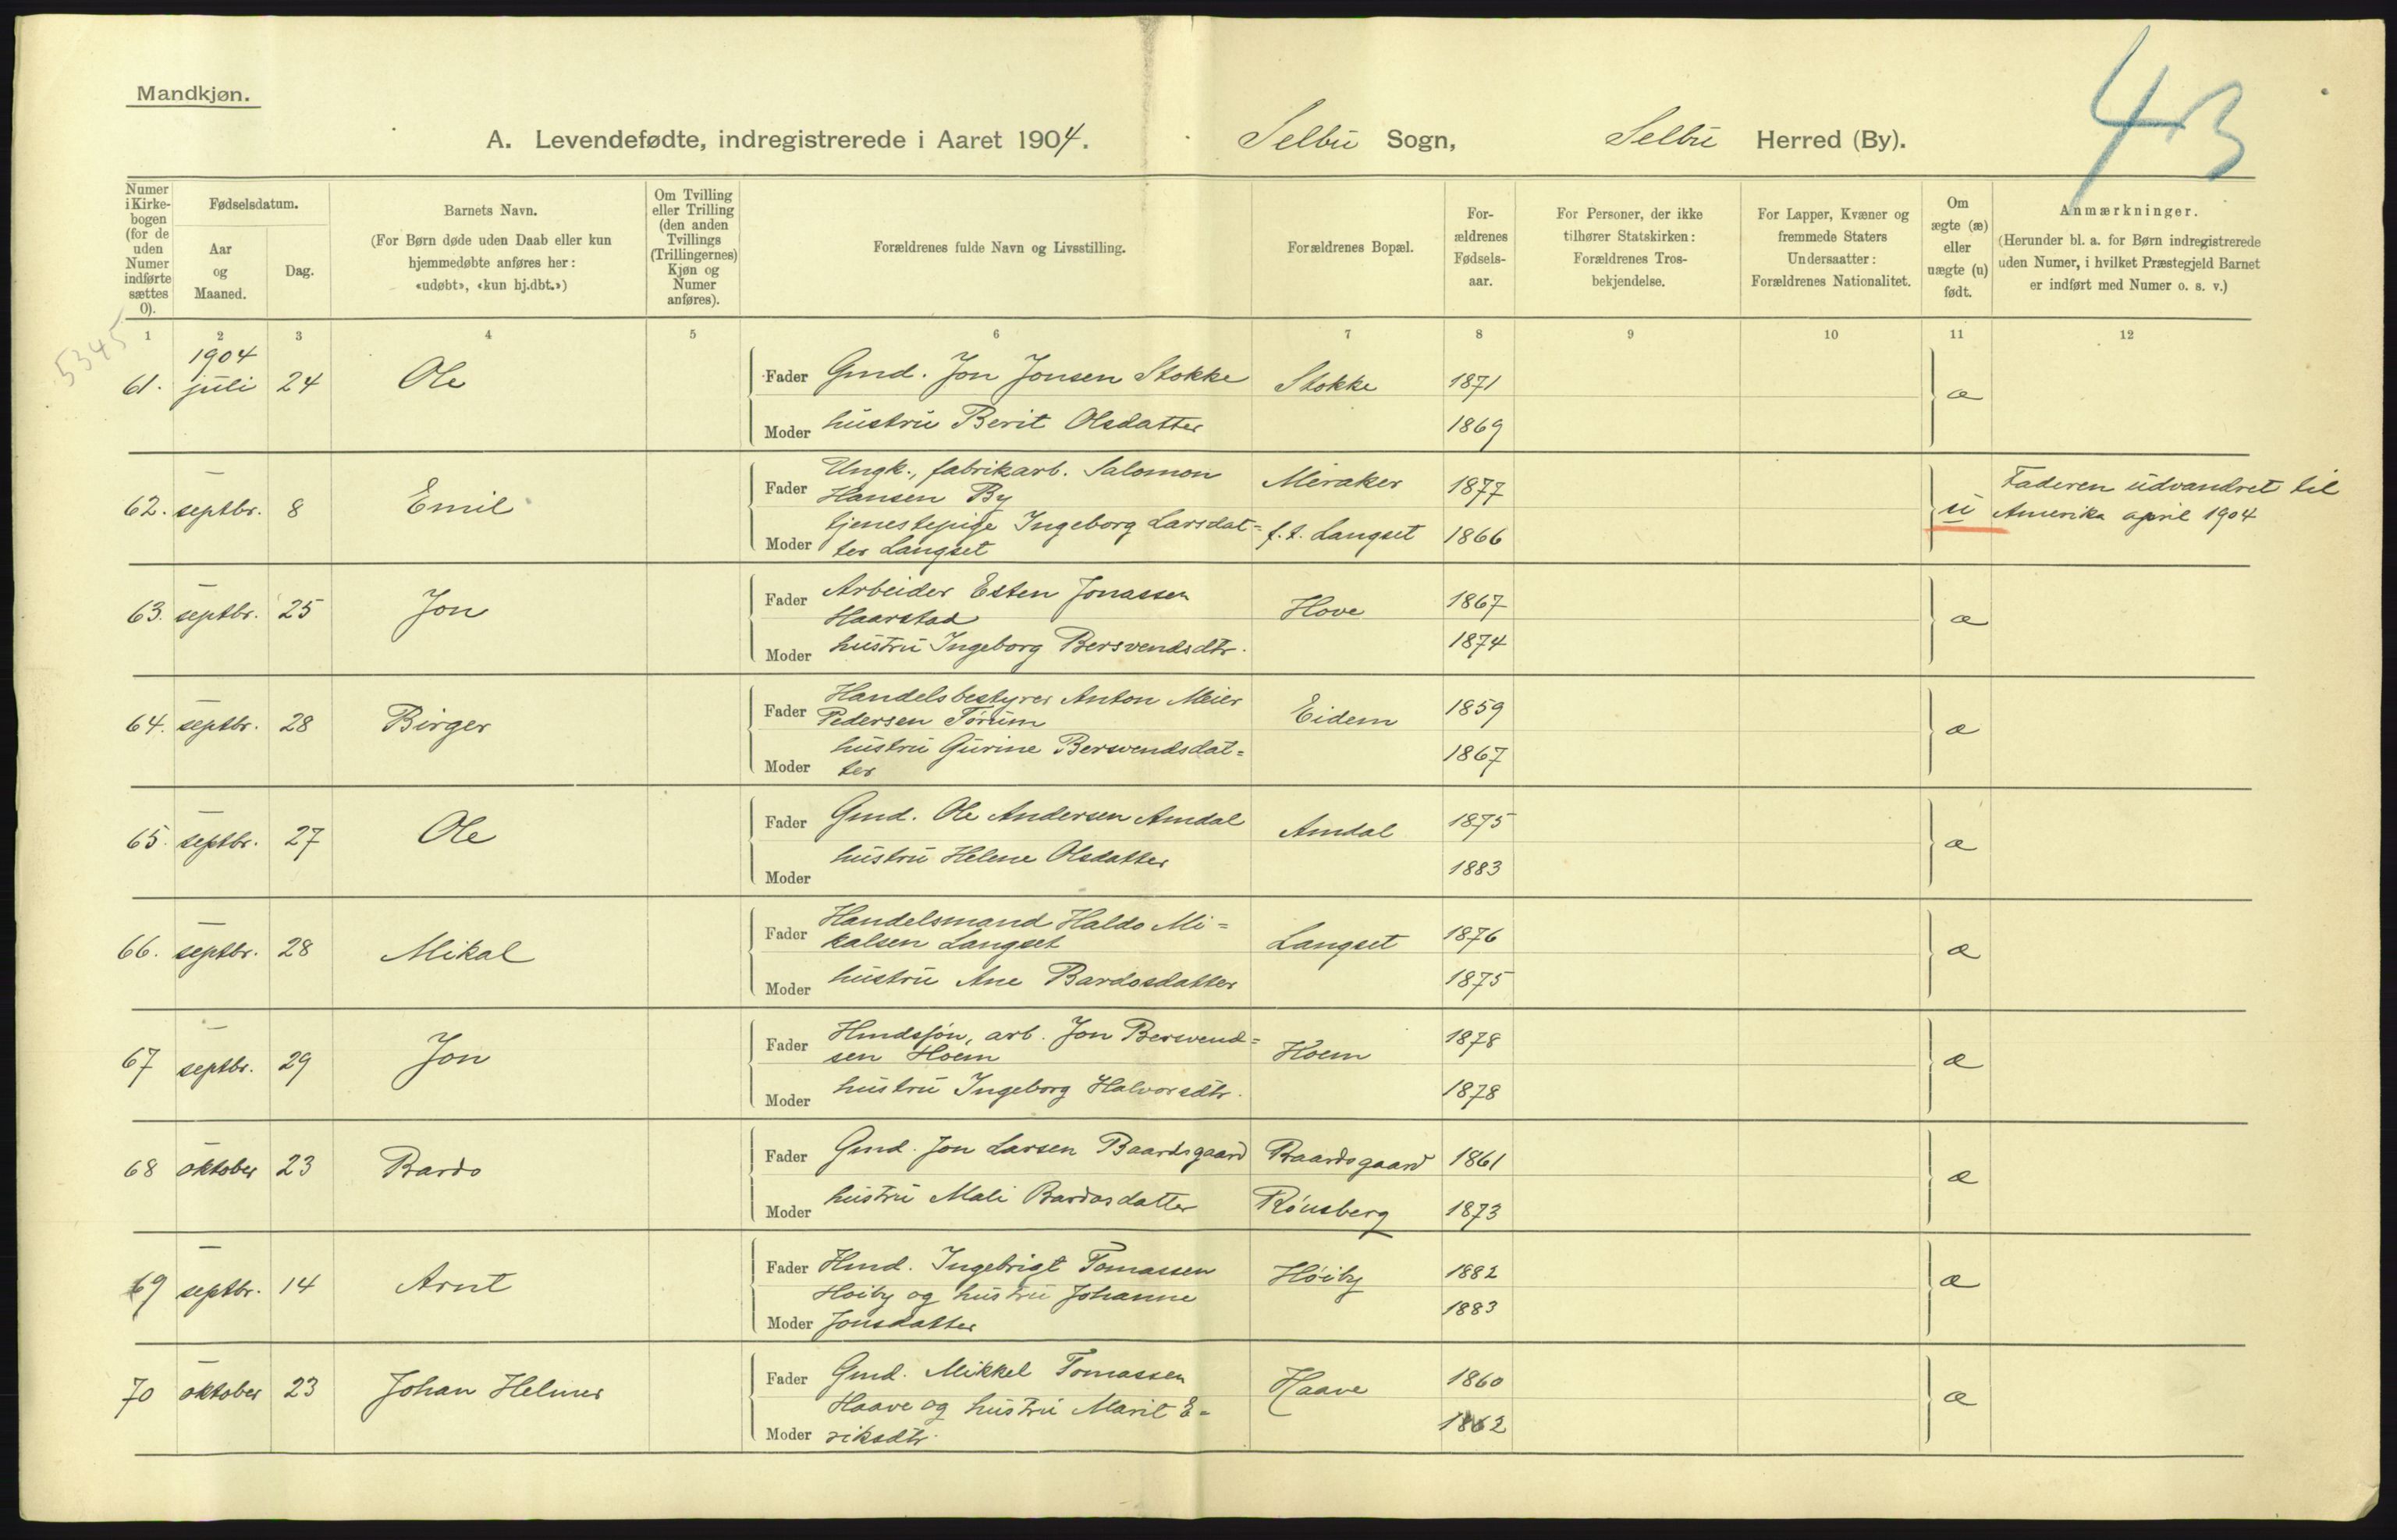 43
Mandkjøn.
A. Levendefødte, indregistrerede i Aaret 1904. Selbu Sogn, Selbu Herred (By).
Numer i Kirke-bogen (for de uden Numer indførte sættes 0).
Fødselsdatum.
Aar og Maaned.
Dag.
Barnets Navn.
(For Børn døde uden Daab eller kun hjemmedøbte anføres her: «udøbt», «kun hj.dbt.»)
Om Tvilling eller Trilling (den anden Tvillings (Trillingernes) Kjøn og Numer anføres).
Forældrenes fulde Navn og Livsstilling.
Forældrenes Bopæl.
For-ældrenes Fødsels-aar.
For Personer, der ikke tilhører Statskirken: Forældrenes Tros-bekjendelse.
For Lapper, Kvæner og fremmede Staters Undersaatter: Forældrenes Nationalitet.
Om ægte (æ) eller uægte (u) født.
Anmærkninger.
(Herunder bl. a. for Børn indregistrerede uden Numer, i hvilket Præstegjeld Barnet er indført med Numer o. s. v.)
1 2 3 4 5 6 7 8 9 10 11 12
5345
1904
61. juli 24 Ole Fader Gmd. Jon Jonsen Stokke Stokke 1871 æ
Moder hustru Berit Olsdatter 1869
62. septbr. 8 Emil Fader Ungk., fabrikarb. Salomon
Hansen By Meraker 1877 u Faderen udvandret til
Moder tjenestepige Ingeborg Larsdat=
ter Langset f.t. Langset 1866 Amerika april 1904
63. septbr. 25 Jon Fader Arbeider Esten Jonassen
Haarstad Hove 1867 æ
Moder hustru Ingeborg Bersvendsdtr. 1874
64. septbr. 28 Birger Fader Handelsbestyrer Anton Meier
Pedersen Tørum Eidem 1859 æ
Moder hustru Gurine Bersvendsdat=
ter 1867
65. septbr. 27 Ole Fader Gmd. Ole Andersen Amdal Amdal 1875 æ
Moder hustru Helene Olsdatter 1883
66. septbr. 28 Mikal Fader Handelsmand Haldo Mi=
kalsen Langset Langset 1876 æ
Moder hustru Ane Bardosdatter 1875
67 septbr. 29 Jon Fader Hmdssøn, arb. Jon Bersvend=
sen Hoem Hoem 1878 æ
Moder hustru Ingeborg Halvorsdtr. 1878
68 oktober 23 Bardo Fader Gmd. Jon Larsen Baardsgaard Baardsgaard 1861 æ
Moder hustru Mali Bardosdatter Rønsberg 1873
69 septbr. 14 Arnt Fader Hmd. Ingebrigt Tomassen Høiby 1882 æ
Høiby og hustru Johanne 1883
Moder Jonsdatter
70 oktober 23 Johan Helmer Fader Gmd. Mikkel Tomassen Haave 1860 æ
Haave og hustru Marit E=
Moder riksdtr. 1862